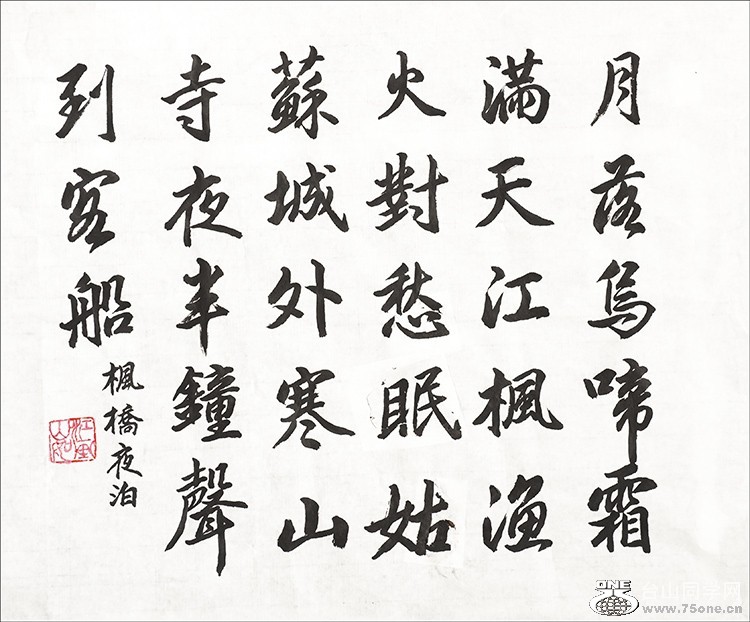 月落烏啼霜
滿天江楓漁
火對愁眠姑
蘇城外寒山
寺夜半鐘聲
到客船
楓橋夜泊
ONE
台山同学网
www.75one.cn